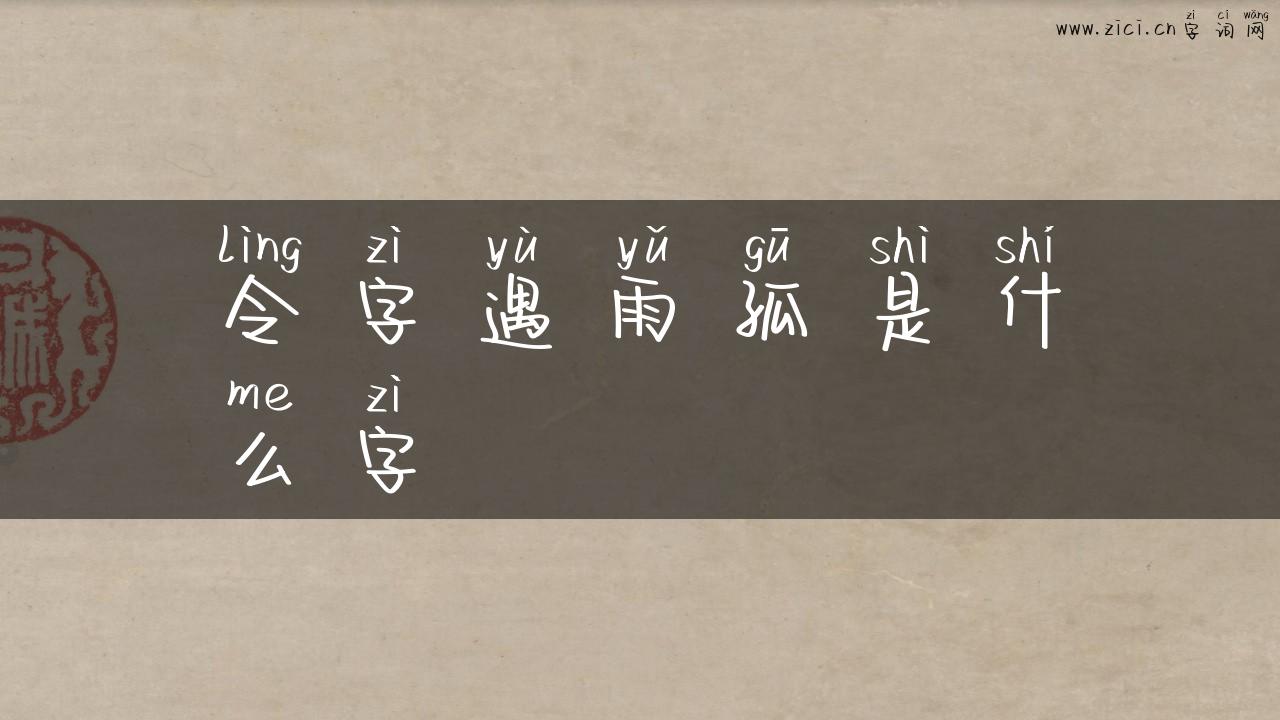 www.zici.cn字词网
zì cí wǎng
lìng zì yù yǔ gū shì shí
令字遇雨孤是什
me zì
么字